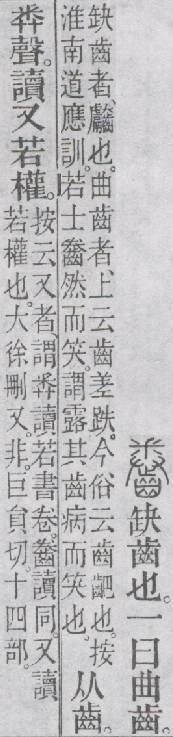 齤缺齒也。一曰曲齒。
缺齒者、齾也。曲齒者、上云齒差跌。今俗云齒齙也。按
淮南道應訓。若士齤然而笑。謂露其齒病而笑也。
从齒。
𢍏聲。讀又若權。
按云又者、謂𢍏讀若書卷。齤讀同。又讀
若權也。大徐刪又。非。巨員切。十四部。